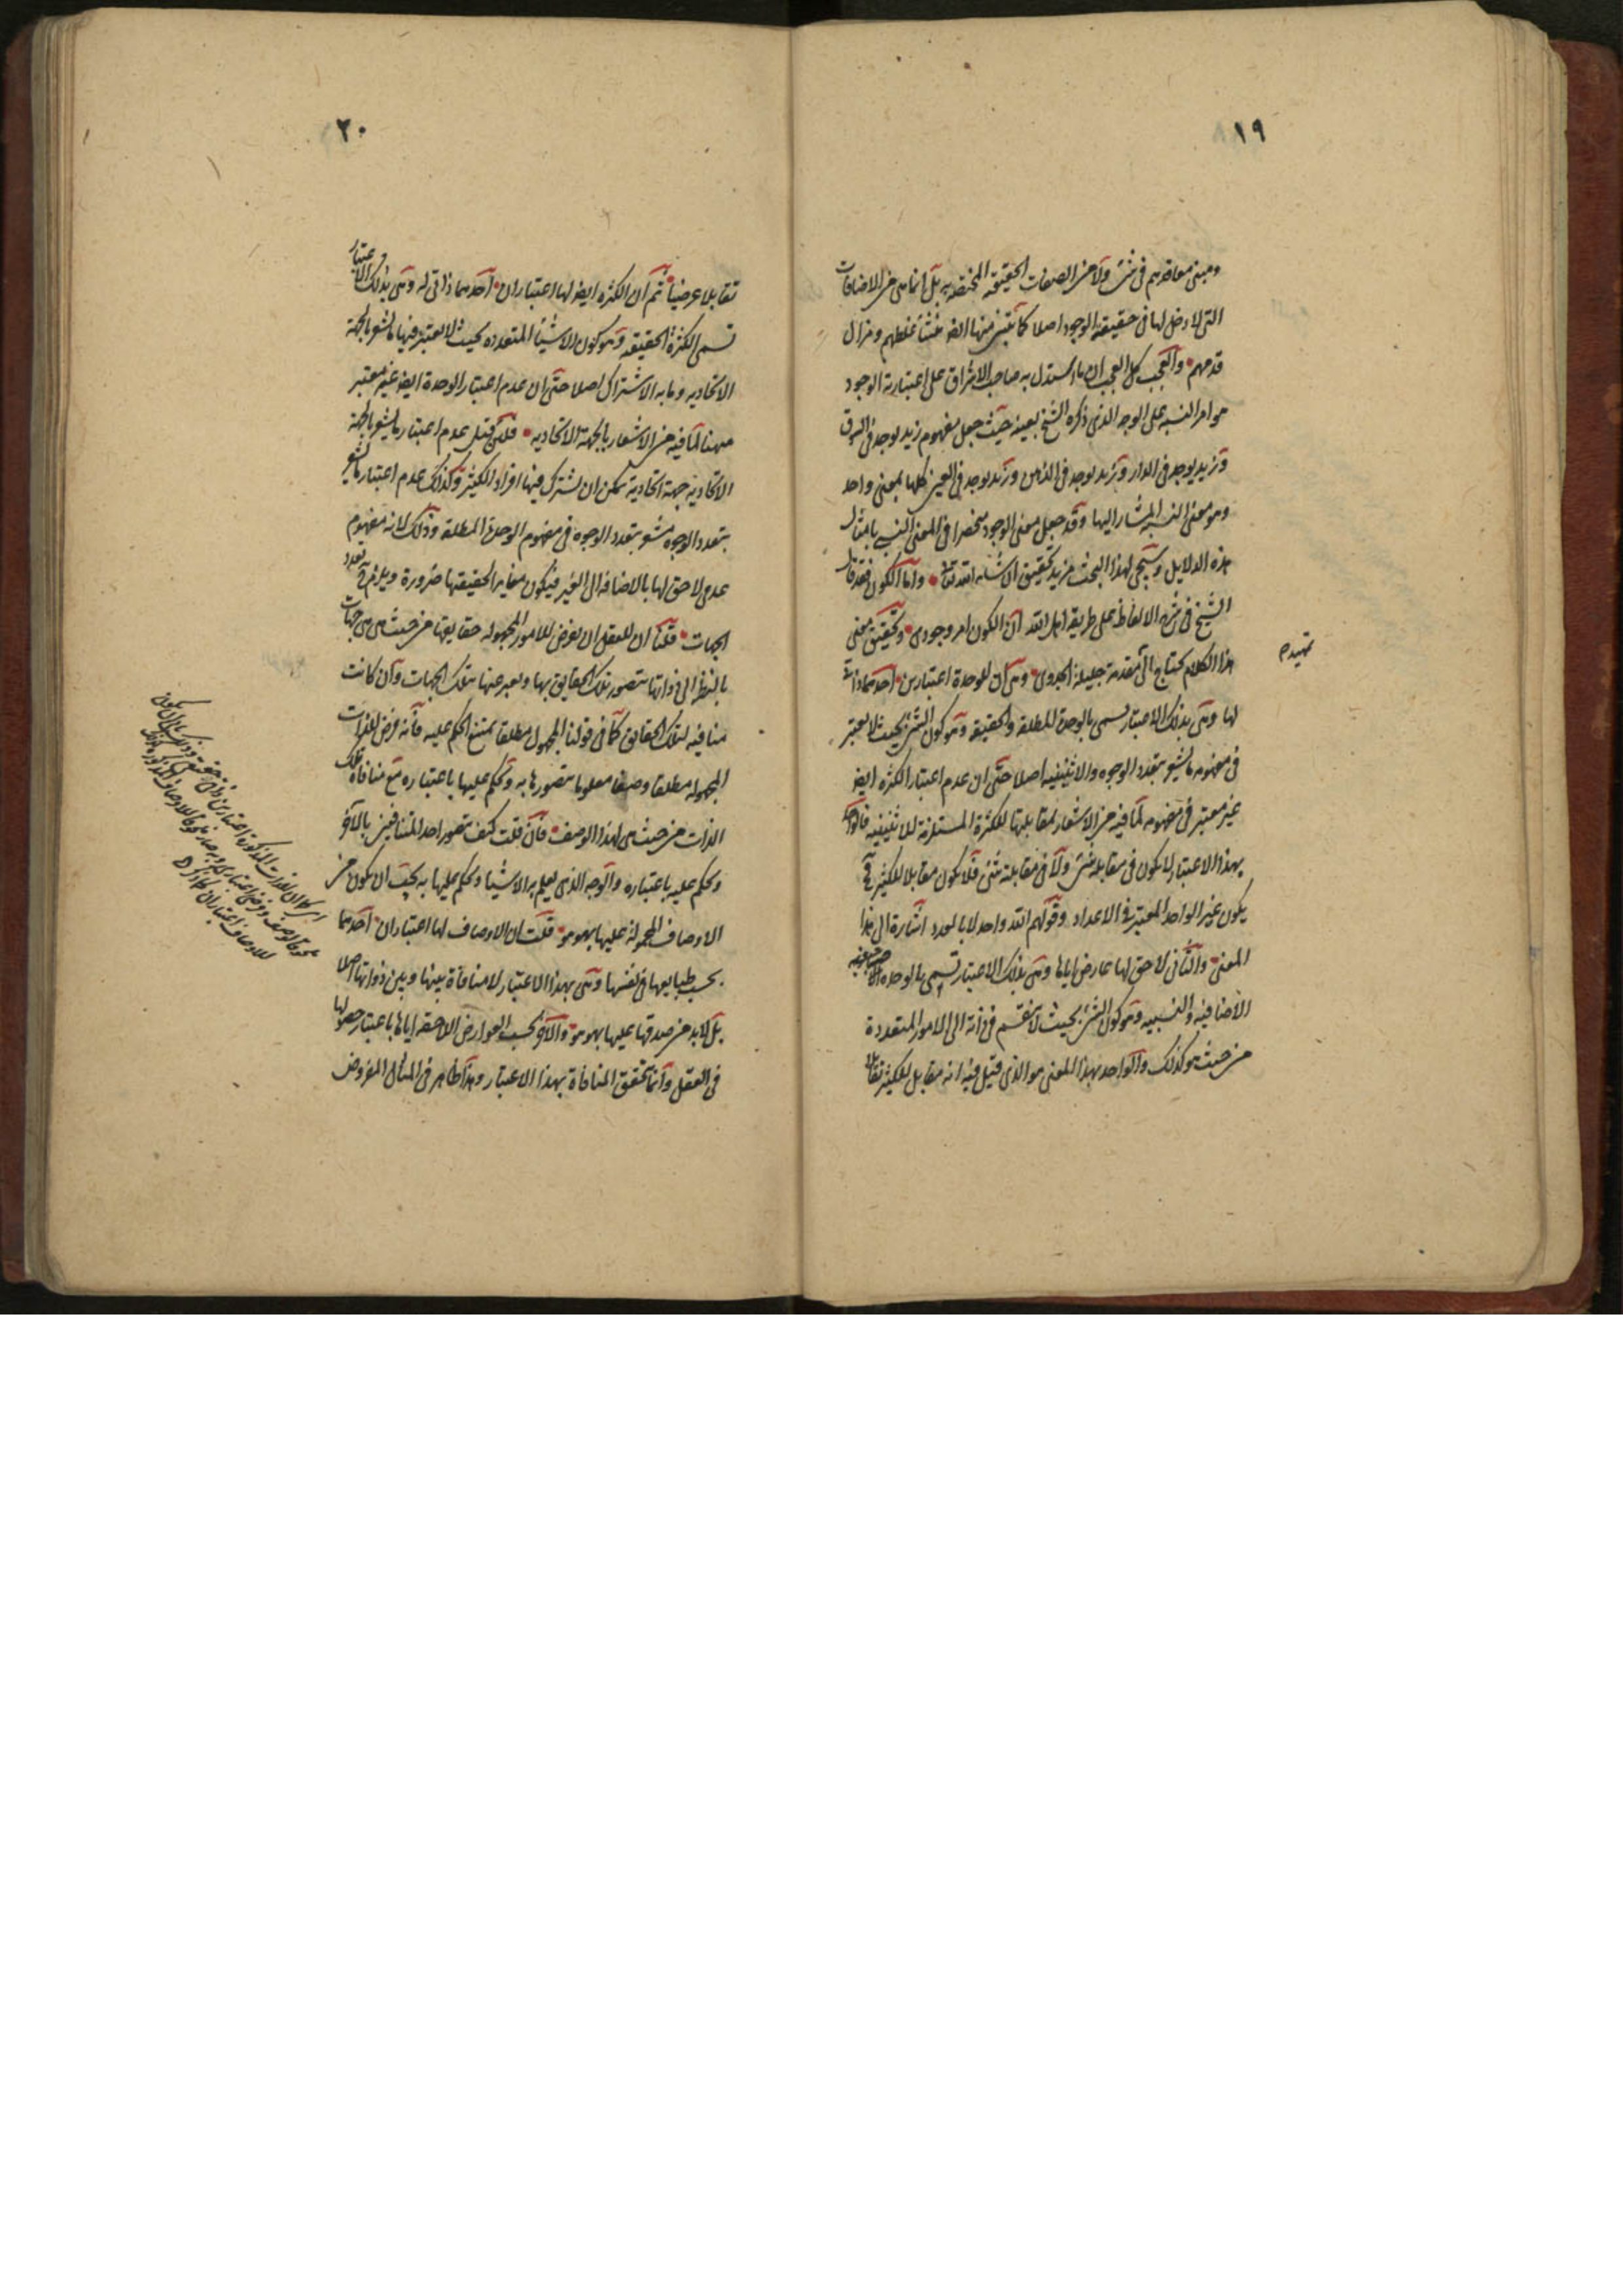 ١٩
ومبنى معاقدهم فى شئ ولا من الصفات الحقيقية المختصة به بل انما هى من الاضافات
التى لا دخل لها فى حقيقة الوجود اصلا كما تبين منها ايضا منشأ غلطهم ومزال
قدمهم والعجب كل العجب ان ما استدل به صاحب الاشراق على اعتبارية الوجود
هو امر النسبة على الوجه الذى ذكره الشيخ بعينه حيث جعل مفهوم زيد يوجد فى السوق
وزيد يوجد فى الدار وزيد يوجد فى الذهن وزيد يوجد فى العين كلها بمعنى واحد
وهو معنى النسبة المشار اليها وقد جعل معنى الوجود منحصرا فى المعنى النسبى بامثال
هذه الدلايل وسيجئ لهذا البحث مزيد تحقيق ان شاء الله تعالى واما الكون فقد قال
الشيخ فى شرح الالفاظ على طريقة اهل الله ان الكون امر وجودى وتحقيق معنى
هذا الكلام يحتاج الى مقدمة جليلة الجدوى وهى ان للوحدة اعتبارين احدهما ذاتى
تمهيد
لها وهى بذلك الاعتبار تسمى بالوحدة المطلقة والحقيقية وهو كون الشئ بحيث لا يعتبر
فى مفهومه ما يشعر بتعدد الوجوه والاثنينية اصلا حتى ان عدم اعتبار الكثرة ايضا
غير معتبر فى مفهومه لما فيه من الاشعار بمقابلتها للكثرة المستلزمة للاثنينية فالواحد
بهذا الاعتبار لا يكون فى مقابلة شئ ولا فى مقابلته شئ فلا يكون مقابلا للكثير فح
يكون غير الواحد المعتبر فى الاعداد وقولهم الله واحد لا بالعدد اشارة الى هذا
المعنى والثانى لاحق لها عارض اياها وهى بذلك الاعتبار تسمى بالوحدة
الاضافية والنسبية وهو كون الشئ بحيث لا ينقسم فى ذاته الى الامور المتعددة
من حيث هو كذلك والواحد بهذا المعنى هو الذى قيل فيه انه مقابل للكثير تقابلا
٢٠
تقابلا عرضيا ثم ان الكثرة ايضا لها اعتباران احدهما ذاتى له وهى بذلك الاعتبار
تسمى الكثرة الحقيقية وهو كون الاشياء المتعددة بحيث لا يعتبر فيها ما يشعر بالجهة
الاتحادية وما به الاشتراك اصلا حتى ان عدم اعتبار الوحدة ايضا غير معتبر
ههنا لما فيه من الاشعار بالجهة الاتحادية فلئن قيل عدم اعتبار ما يشعر بالجهة
الاتحادية جهة اتحادية يمكن ان يشترك فيها افراد الكثير وكذلك عدم اعتبار ما يشعر
بتعدد الوجوه مشعر بتعدد الوجوه فى مفهوم الوحدة المطلقة وذلك لانه مفهوم
عدمى لاحق لها بالاضافة الى الغير فيكون مغايرا لحقيقتها ضرورة ويلزم به تعدد
الجهات قلنا ان للعقل ان يفرض للامور المجهولة حقايقها من حيث هى هى جهات
بالنظر الى ذواتها يتصور تلك الحقايق بها ويعبر عنها بتلك الجهات وان كانت
منافية لتلك الحقايق كما فى قولنا المجهول مطلقا يمتنع الحكم عليه فانه فرض للذات
المجهولة مطلقا وصفا معلوما يتصورها به ويحكم عليها باعتباره مع منافاة تلك
الذات من حيث هى لهذا الوصف فان قلت كيف يتصور احد المتنافيين بالآخر
ويحكم عليه باعتباره والوجه الذى يعلم به الاشياء ويحكم عليها به يجب ان يكون من
الاوصاف المحمولة عليها بهو هو قلت ان الاوصاف لها اعتباران احدهما
بحسب طبايعها فى نفسها وهى بهذا الاعتبار لا منافاة بينها وبين ذواتها اصلا
بل لا بد من صدقها عليها بهو هو والآخر بحسب العوارض اللاحقة اياها باعتبار حصولها
فى العقل وانما تحقق المنافاة بهذا الاعتبار وهذا ظاهر فى المثال المفروض